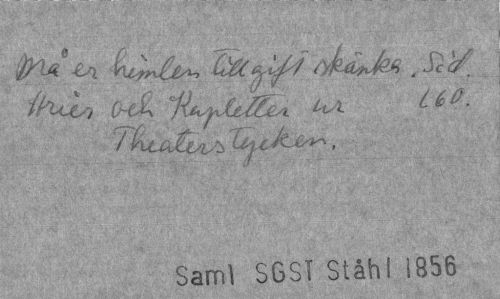 Må er himlen tillgift skänka. Sid.
Arier och Kupletter ur 160.
Theaterstycken.
Saml SGST Ståhl 1856